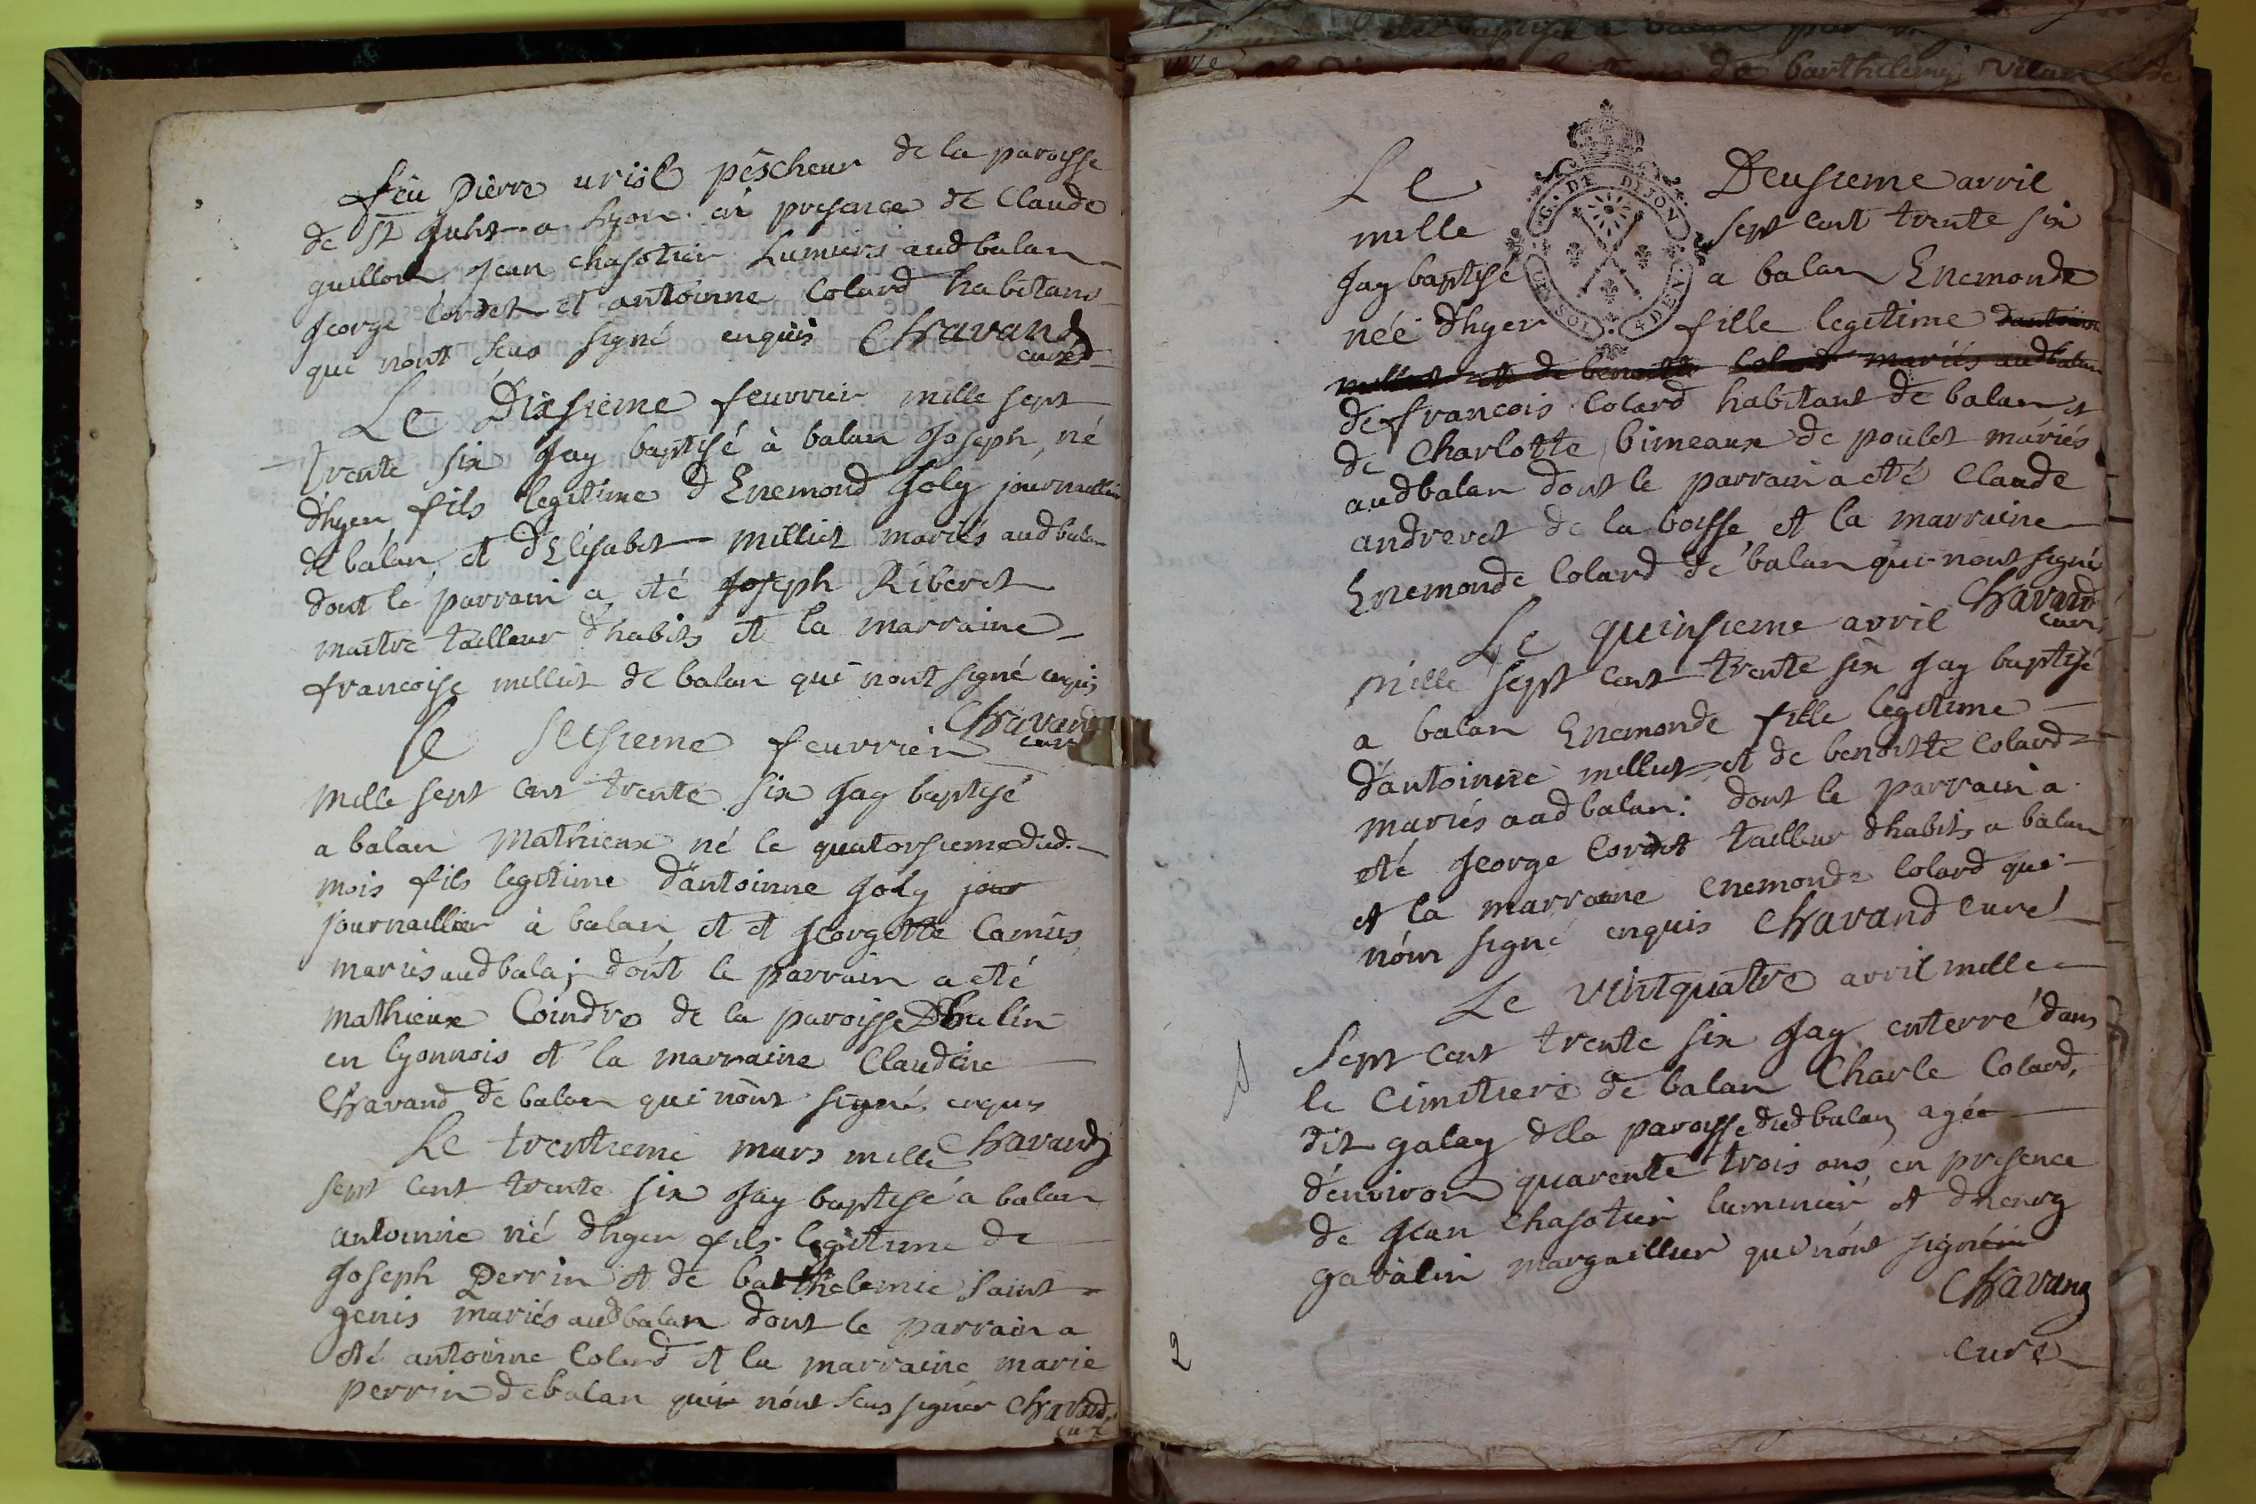 feu Pierre uriol pêscheur de la paroisse
de st Juhst a Lyon en presence de Claude
guillon Jean chasotier Lumiers audbalan
george Cordet et antoinne Colard habitans
qui nont sceu signé enquis Chavand
curé
Le Dixsieme feuvrier mille sept
trente six Jay baptisé à balan Joseph, né
d'hyer fils legitime d'Enemond Joly journallier
de balan, et d'Elisabet milliet mariés audbalan
dont le parrain a eté Joseph Riberet
maitre tailleur d'habits et la marraine
francoise milliet de balan qui nont signé enquis
Chavand
Le seisieme feuvrier curé
mille sept cent trente six Jay baptisé
a balan Mathieux né le quatorsieme dud.
mois fils legitime d'antoinne Joly jour
journaillier à balan et et georgette Camus
mariés audbala; dont le parrain a eté
mathieux Coindro de la paroisse Dhulin
en lyonnois et la marraine Claudine
Chavand de balan qui nont signé enquis
Le trentieme mars mille Chavand
sept cent trente six Jay baptisé a balan
antoinne né d'hyer fils legitime de
Joseph Perrin et de barthelemie saint
genis mariés audbalan dont le parrain a
eté antoinne Colard et la marraine marie
perrin de balan qui nont sceu signer Chavand
curé
de barthelemy
G. DE DIJON
UN SOL 4 DEN
Le Deusieme avril
mille sept cent trente six
Jay baptisé a balan Enemonde
née d'hyer fille legitime dantoinne
milliet et de benoitte Colard mariés audbalan
de francois Colard habitant de balan et
de Charlotte bimeaux de poulet mariés
audbalan dont le parrain a eté Claude
andreret de la boisse et la marraine
Enemonde Colard de balan qui nont signé
Chavand
Le quinsieme avril curé
mille sept cent trente six Jay baptisé
a balan Enemonde fille legitime
d'antoinne milliet et de benoitte Colard
mariés audbalan: dont le parrain a
eté george Cordet tailleur d'habits a balan
et la marraine enemonde Colard qui
nont signé enquis Chavand Curé
Le vintquatre avril mille
sept cent trente six Jay enterré dans
le cimitiere de balan Charle Colard,
dit galay dela paroisse dudbalan agée
d'environ quarente trois ans en presence
de Jean chasotier luminier et d'henry
gavalin margaillier qui nont signé
Chavand
2
curé